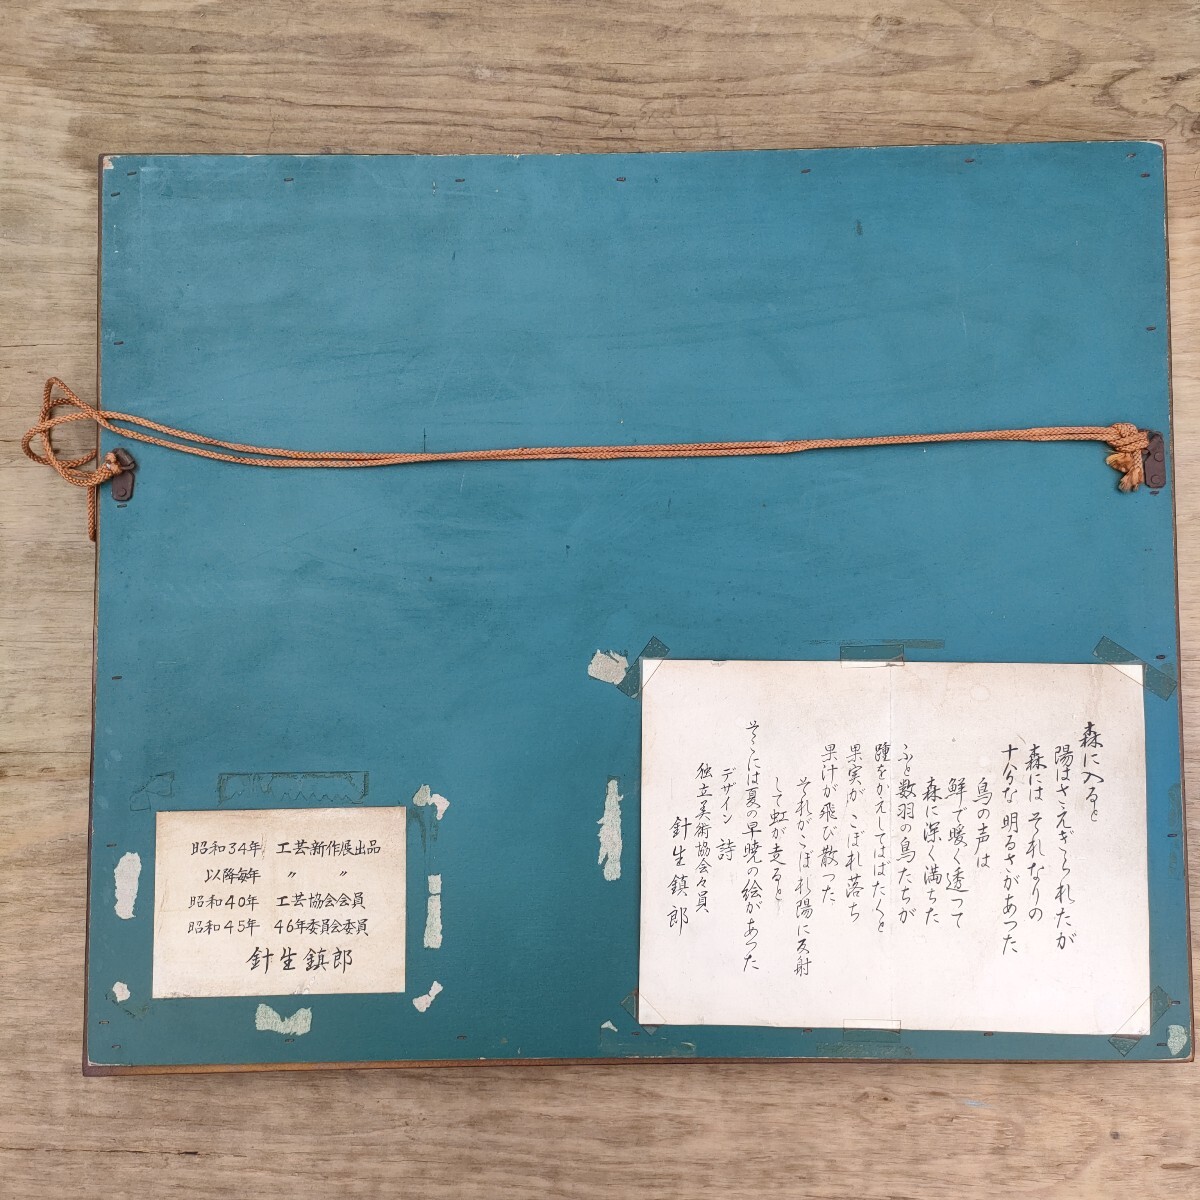 森に入ると
陽はさえぎられたが
森には それなりの
十分な 明るさがあった
鳥の声は
鮮で暖く透って
森に深く満ちた
ふと数羽の鳥たちが
踵をかえしてはばたくと
果実が こぼれ落ち
果汁が飛び散った
それがこぼれ陽に反射
して虹が走ると
そこには夏の早暁の絵があった
デザイン 詩
独立美術協会々員
針生鎮郎
昭和34年 工芸新作展出品
以降毎年 〃 〃
昭和40年 工芸協会会員
昭和45年 46年委員会委員
針生鎮郎